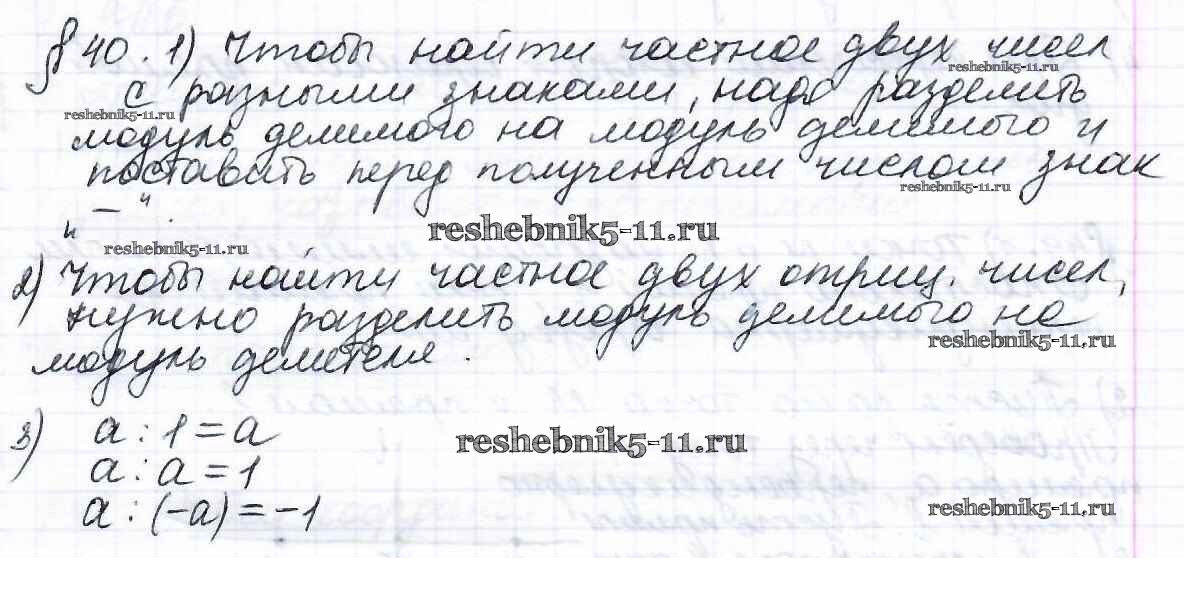 § 40. 1) Чтобы найти частное двух чисел
reshebnik5-11.ru
с разными знаками, надо разделить
reshebnik5-11.ru
модуль делимого на модуль делимого и
поставить перед полученным числом знак
reshebnik5-11.ru
„ – “.
reshebnik5-11.ru
reshebnik5-11.ru
2) Чтобы найти частное двух отриц. чисел,
нужно разделить модуль делимого на
reshebnik5-11.ru
модуль делителя.
3) a : 1 = a
reshebnik5-11.ru
a : a = 1
a : (-a) = -1
reshebnik5-11.ru